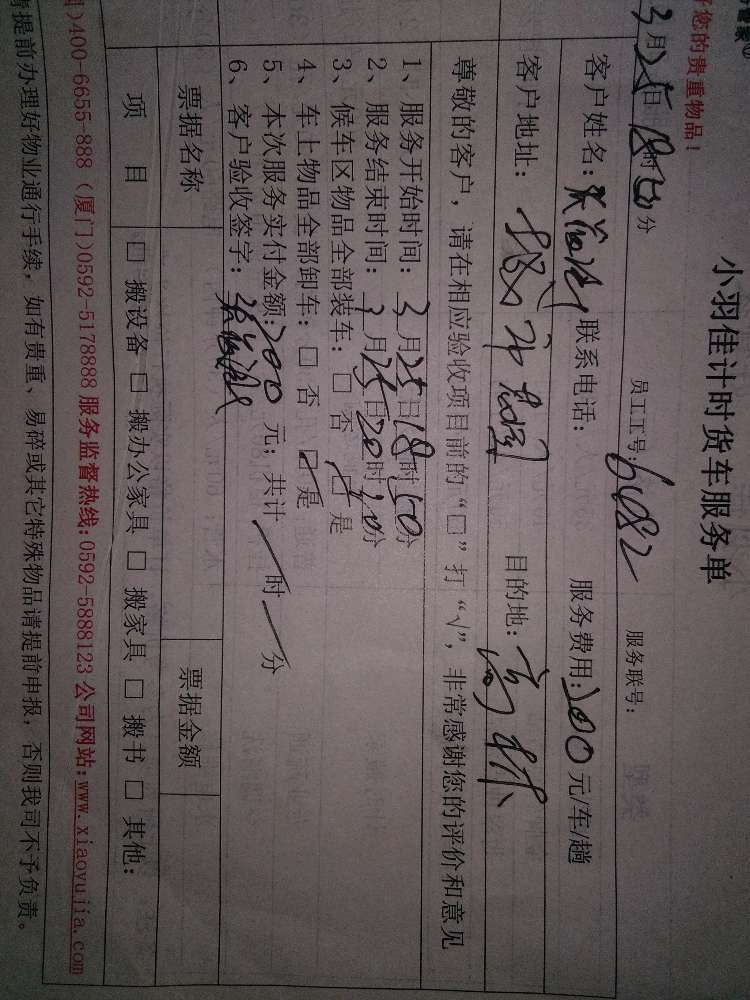 好您的贵重物品！
小羽佳计时货车服务单
3月25日18时50分 员工工号：6082 服务联号：
客户姓名： 联系电话： 服务费用：200元/车/趟
客户地址： 目的地：高林
尊敬的客户，请在相应验收项目前的“□”打“√”，非常感谢您的评价和意见
1、服务开始时间：3月25日18时50分
2、服务结束时间：3月25日20时20分
3、候车区物品全部装车：□ 否 ☑ 是
4、车上物品全部卸车：□ 否 ☑ 是
5、本次服务实付金额：200元；共计 / 时 / 分
6、客户验收签字：
票据名称 票据金额
项 目 □ 搬设备 □ 搬办公家具 □ 搬家具 □ 搬书 □ 其他：
)400-6655-888（厦门)0592-5178888 服务监督热线：0592-5888123 公司网站：www.xiaoyujia.com
请提前办理好物业通行手续，如有贵重、易碎或其它特殊物品请提前申报，否则我司不予负责。